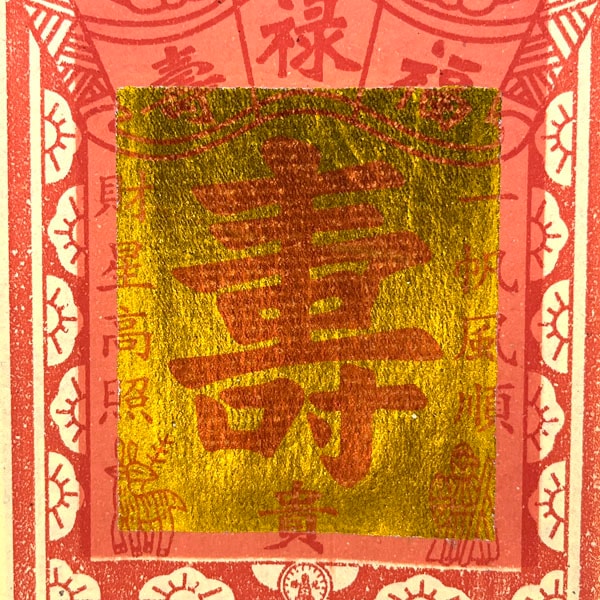 福祿壽
一帆風順
壽
財星高照
貴